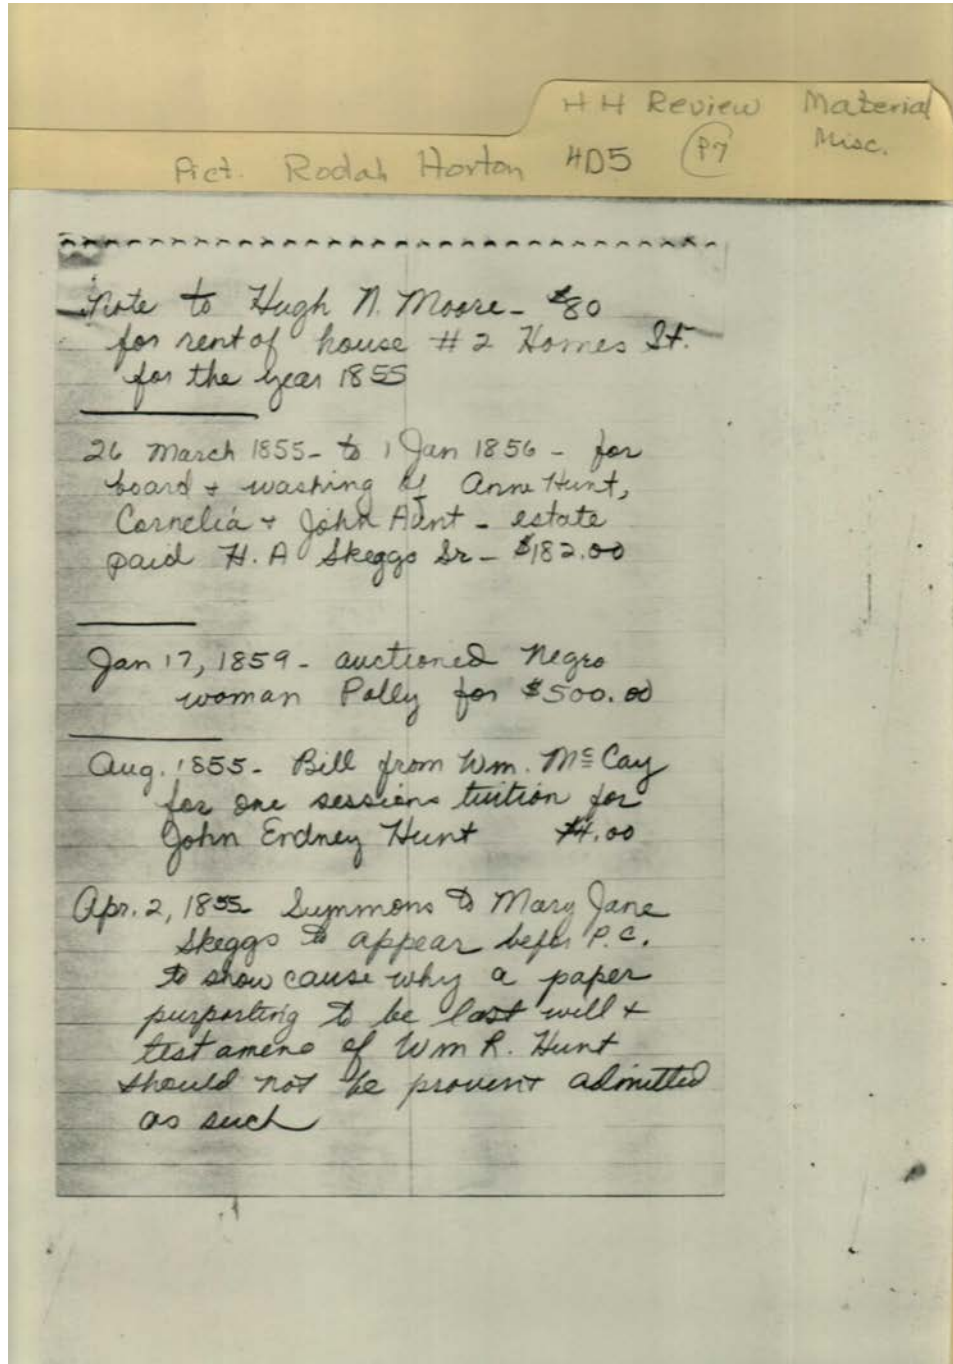 HH Review Material
Pict. Rodah Horton 4D5 P7 Misc.
Note to Hugh N. Moore - $80
for rent of house #2 Homes St.
for the year 1855
26 March 1855 - to 1 Jan 1856 - for
board + washing of Anne Hunt,
Cornelia + John Aunt - estate
paid H. A Skeggs Sr - $182.00
Jan 17, 1859 - auctioned Negro
woman Polly for $500.00
Aug. 1855 - Bill from Wm. McCay
for one sessions tuition for
John Erdney Hunt $4.00
Apr. 2, 1855 - Summons to Mary Jane
Skeggs to appear P.C.
to show cause why a paper
purporting to be last will +
testameno of Wm R. Hunt
should not be admitted
as such